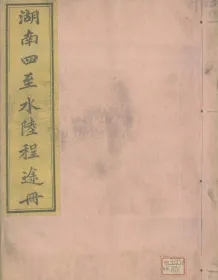 湖南四至水陸程途冊